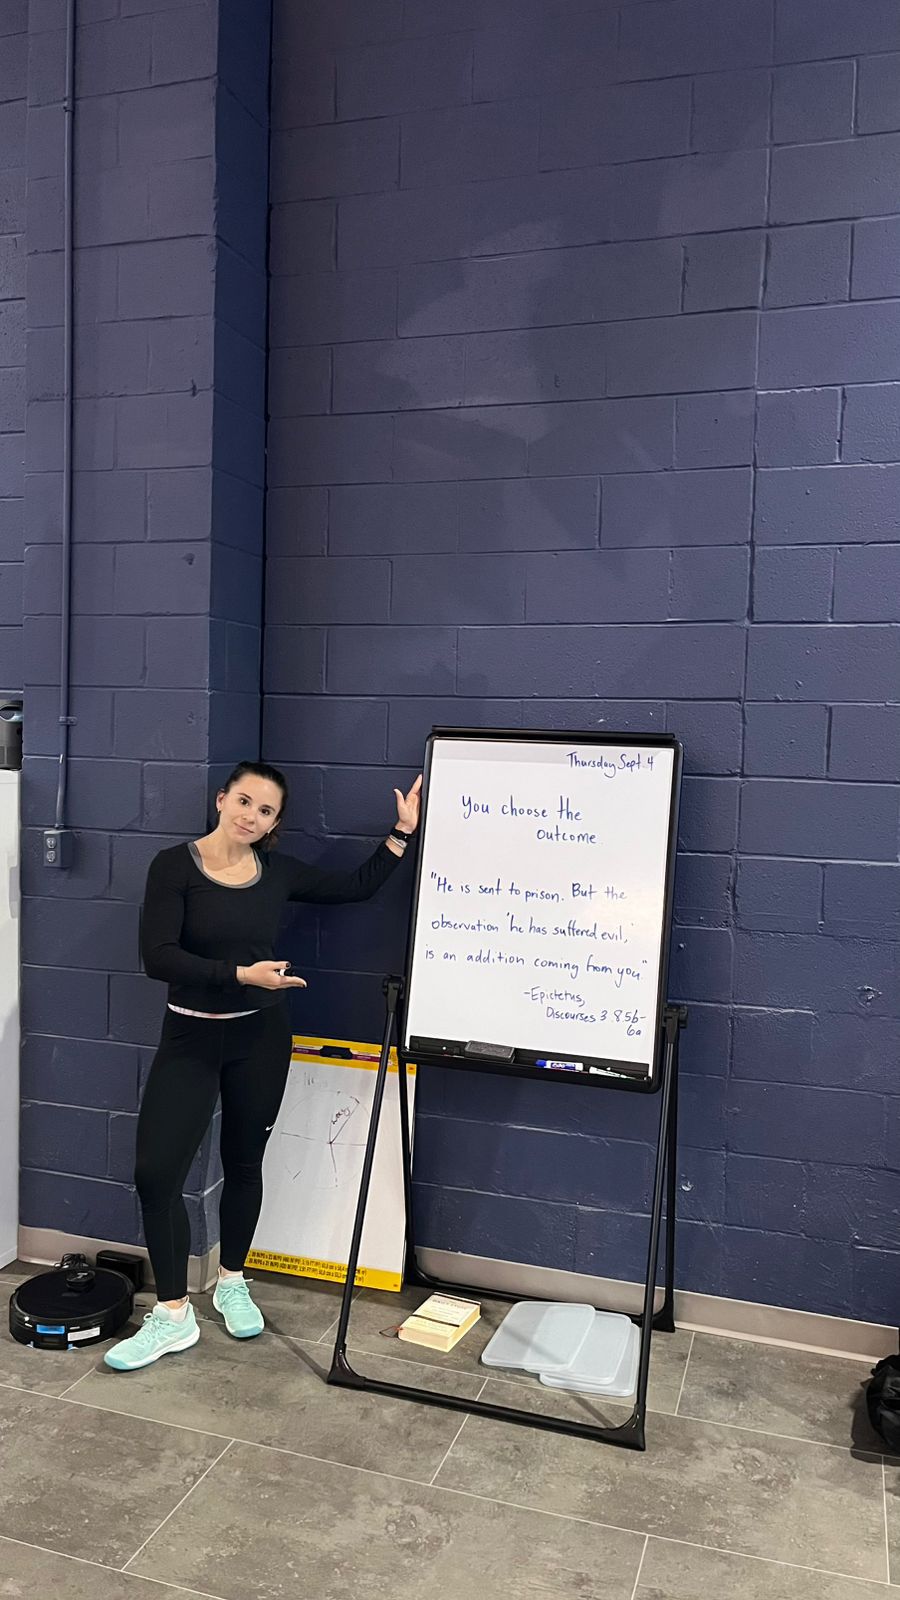 Thursday Sept 4
You choose the
outcome.
"He is sent to prison. But the
observation 'he has suffered evil,'
is an addition coming from you."
-Epictetus,
Discourses 3.8.5b-
6a